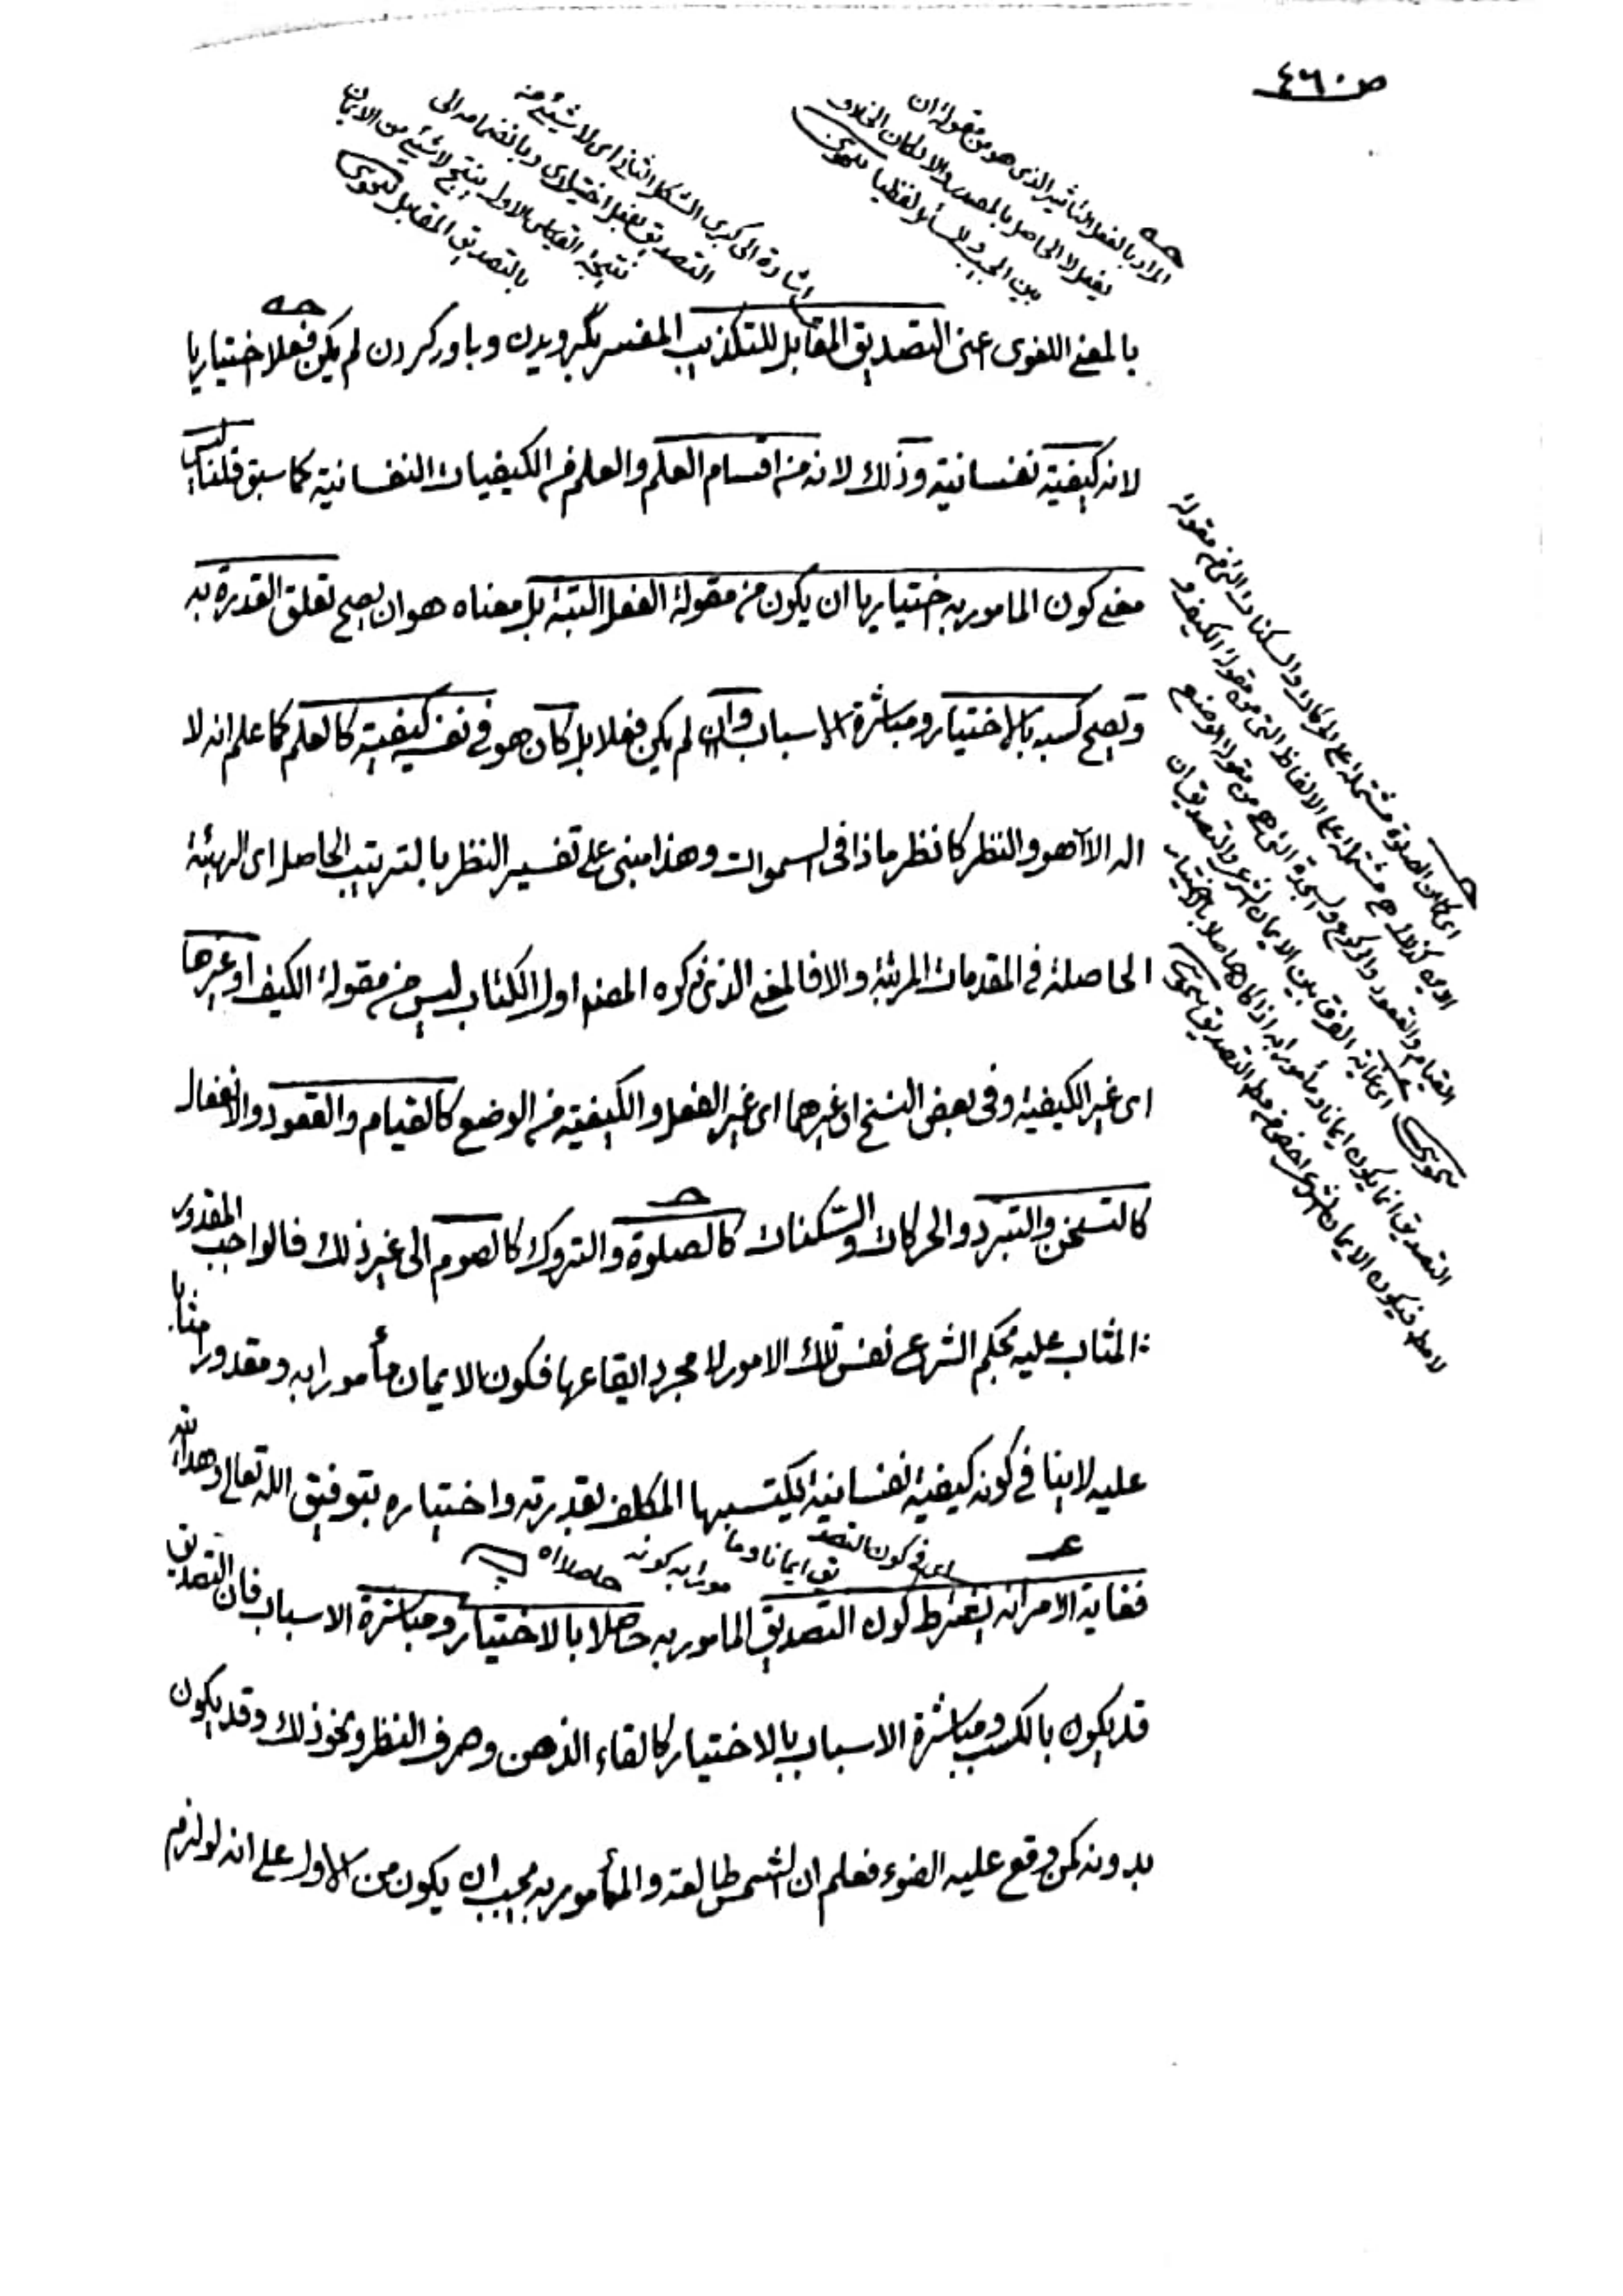 ص ٤٦٠
المراد بالفعل التأثير الذى هو من مقولة ان
يفعل لا الحاصل بالمصدر والا لكان الخلاف
بين المجيب والسائل لفظيا
اشارة الى كبرى الشكل الثانى اى لا شيئ من
التصديق بفعل اختيارى وبانضمامه الى
نتيجة القياس الاول ينتج لا شيئ من الايمان
بالتصديق المقابل
بالمعنى اللغوى اعنى التصديق المقابل للتكذيب المفسر بگرويدن وباور كردن لم يكن فعلا اختياريا
لانه كيفية نفسانية وذلك لانه من اقسام العلم والعلم من الكيفيات النفسانية كما سبق قلنا ليس
معنى كون المامور به اختياريا ان يكون من مقولة الفعل البتة بل معناه هو ان يصح تعلق القدرة به
ويصح كسبه بالاختيار ومباشرة الاسباب وان لم يكن فعلا بل كان هو فى نفسه كيفية كالعلم كما علم انه لا
اله الا هو والنظر كانظر ماذا فى السموات وهذا مبنى على تفسير النظر بالترتيب الحاصل اى الهيئة
الحاصلة فى المقدمات المرتبة والا فالمعنى الذى ذكره المصنف اول الكتاب ليس من مقولة الكيف او غيرها
اى غير الكيفية وفى بعض النسخ او غيرهما اى غير الفعل والكيفية من الوضع كالقيام والقعود والانفعال
كالتسخن والتبرد والحركات والسكنات كالصلوة والتروك كالصوم الى غير ذلك فالواجب المقدور
المثاب عليه بحكم الشرع نفس تلك الامور لا مجرد ايقاعها فكون الايمان مأمورا به ومقدورا مثابا
عليه لا ينافى كونه كيفية نفسانية يكتسبها المكلف بقدرته واختياره بتوفيق الله تعالى وهدايته
اى فى كون التصديق ايمانا ومأمورا به كونه حاصلا اه
فغاية الامر انه يشترط كون التصديق المامور به حاصلا بالاختيار ومباشرة الاسباب فان التصديق
قد يكون بالكسب ومباشرة الاسباب بالاختيار كالقاء الذهن وصرف النظر ونحو ذلك وقد يكون
بدونه كمن وقع عليه الضوء فعلم ان الشمس طالعة والمأمور به يجب ان يكون من الاول على انه لو لزم
اى كما ان الصلوة مشتملة على الحركات والسكنات التى من مقولة
الاين كذلك هى مشتملة على الالفاظ التى من مقولة الكيف و
القيام والقعود والركوع والسجدة التى هى من مقولة الوضع
اى غاية الفرق بين الايمان الشرعى والتصديق ان
التصديق انما يكون ايمانا ومأمورا به اذا كان حاصلا بالاختيار
لا مطلقا فيكون الايمان الشرعى اخص من مطلق التصديق